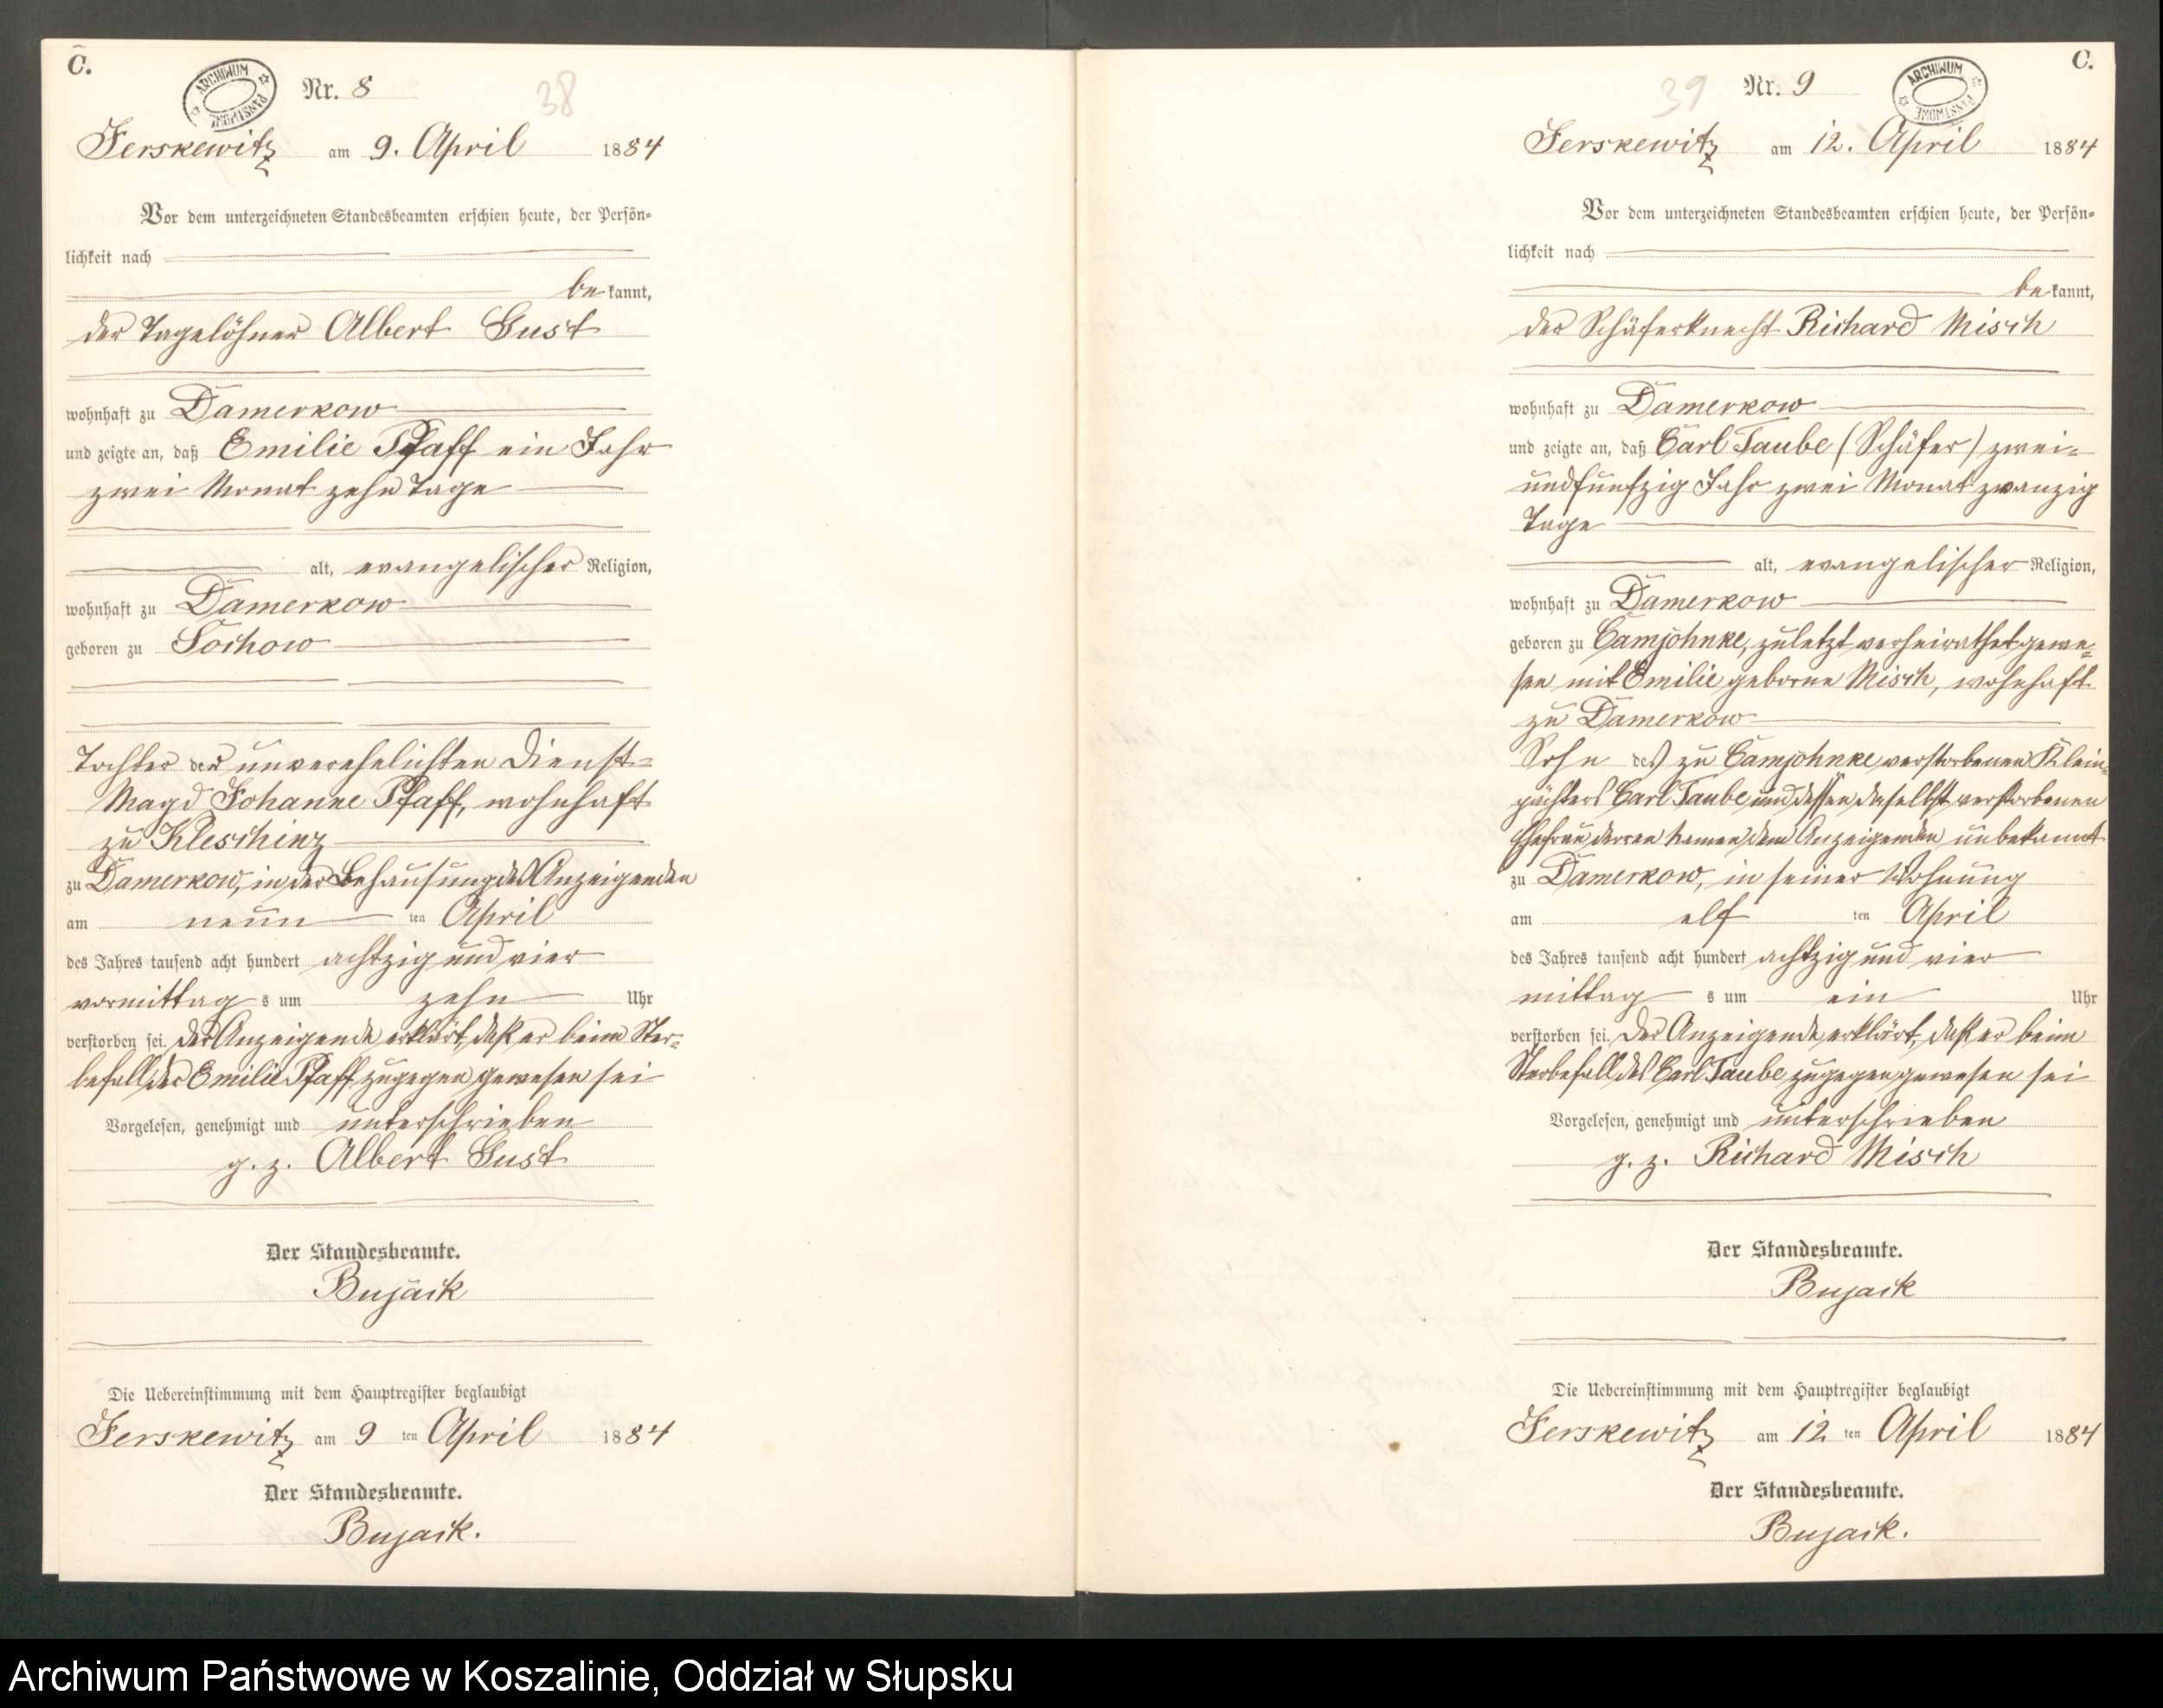 C.
ARCHIWUM PAŃSTWOWE
Nr. 8
38
Jerskewitz am 9. April 1884
Vor dem unterzeichneten Standesbeamten erschien heute, der Persön-
lichkeit nach
be kannt,
der Tagelöhner Albert Gust
wohnhaft zu Damerkow
und zeigte an, daß Emilie Pfaff ein Jahr
zwei Monat zehn Tage
alt, evangelischer Religion,
wohnhaft zu Damerkow
geboren zu Sochow
Tochter der unverehelichten Dienst-
Magd Johanne Pfaff, wohnhaft
zu Kleschinz
zu Damerkow, in der Behausung des Anzeigenden
am neun ten April
des Jahres tausend acht hundert achtzig und vier
vormittag s um zehn Uhr
verstorben sei. Der Anzeigende erklärt, daß er beim Ster-
befall der Emilie Pfaff zugegen gewesen sei
Vorgelesen, genehmigt und unterschrieben
g. z. Albert Gust
Der Standesbeamte.
Bujack
Die Uebereinstimmung mit dem Hauptregister beglaubigt
Jerskewitz am 9 ten April 1884
Der Standesbeamte.
Bujack.
C.
ARCHIWUM PAŃSTWOWE
39
Nr. 9
Jerskewitz am 12. April 1884
Vor dem unterzeichneten Standesbeamten erschien heute, der Persön-
lichkeit nach
be kannt,
der Schäferknecht Richard Misch
wohnhaft zu Damerkow
und zeigte an, daß Carl Taube (Schäfer) zwei-
undfünfzig Jahr zwei Monat zwanzig
Tage
alt, evangelischer Religion,
wohnhaft zu Damerkow
geboren zu Camjohnke, zuletzt verheirathet gewe-
sen mit Emilie geborne Misch, wohnhaft
zu Damerkow
Sohn des zu Camjohnke verstorbenen Klein-
pächters Carl Taube und dessen daselbst verstorbenen
Ehefrau deren Namen dem Anzeigenden unbekannt
zu Damerkow, in seiner Wohnung
am elf ten April
des Jahres tausend acht hundert achtzig und vier
mittag s um ein Uhr
verstorben sei. Der Anzeigende erklärt, daß er beim
Sterbefall des Carl Taube zugegen gewesen sei
Vorgelesen, genehmigt und unterschrieben
g. z. Richard Misch
Der Standesbeamte.
Bujack
Die Uebereinstimmung mit dem Hauptregister beglaubigt
Jerskewitz am 12 ten April 1884
Der Standesbeamte.
Bujack.
Archiwum Państwowe w Koszalinie, Oddział w Słupsku